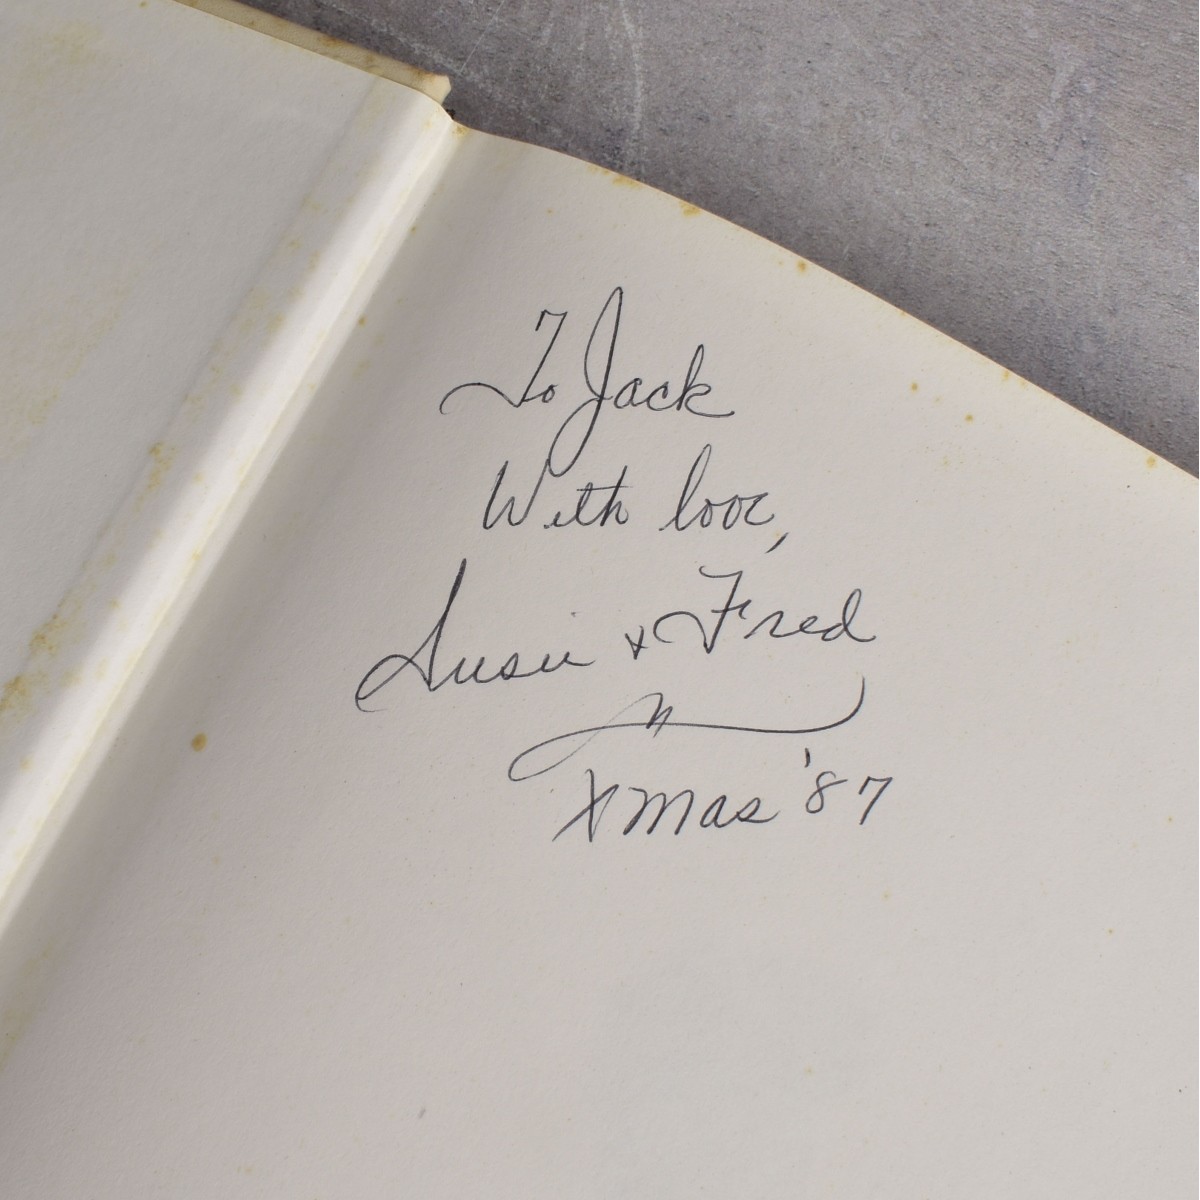 To Jack
With love,
Susie + Fred
Xmas '87